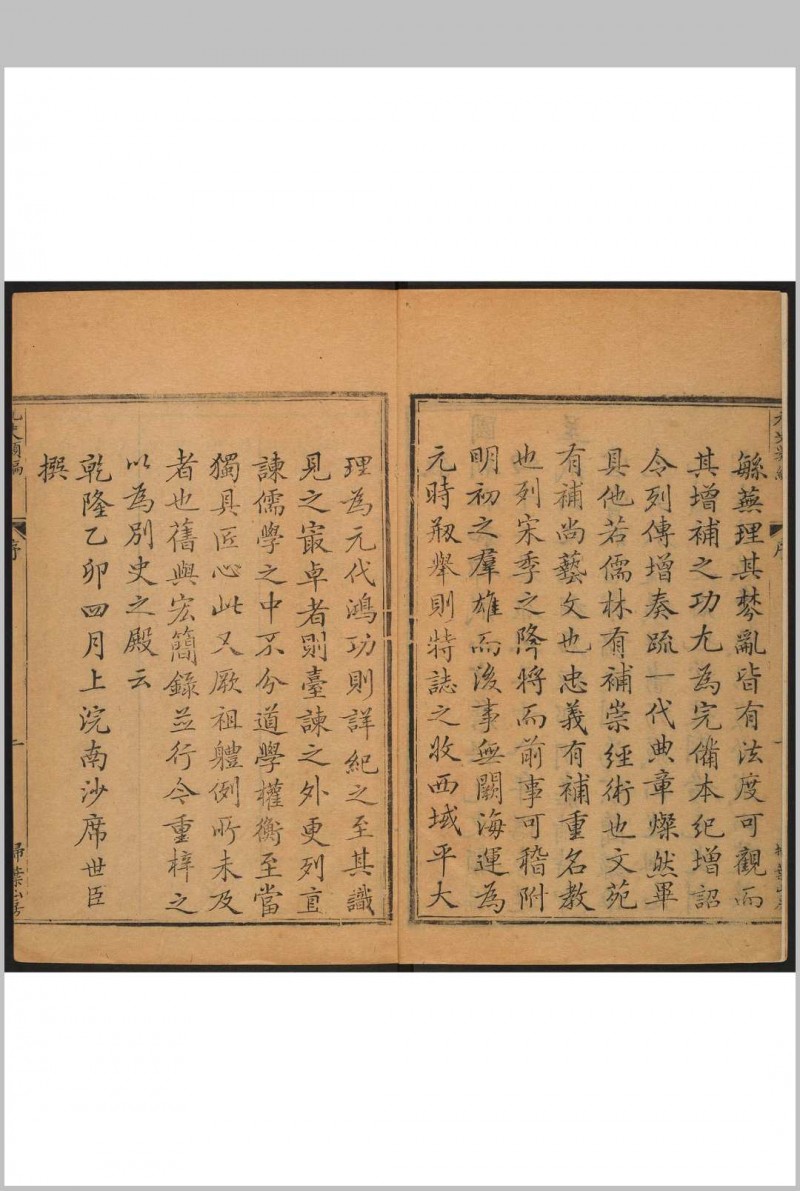 緐蕪理其棼亂皆有法度可觀而
其增補之功尤為完備本紀增詔
令列傳增奏疏一代典章燦然畢
具他若儒林有補崇經術也文苑
有補尚藝文也忠義有補重名教
也列宋季之降將而前事可稽附
明初之羣雄而後事無闕海運為
元時剏舉則特誌之收西域平大
理為元代鴻功則詳紀之至其識
見之㝡卓者則臺諫之外更列直
諫儒學之中不分道學權衡至當
獨具匠心此又厥祖軆例所未及
者也舊與宏簡錄並行今重梓之
以為別史之殿云
乾隆乙卯四月上浣南沙席世臣
撰
元史類編
序
二
掃葉山房